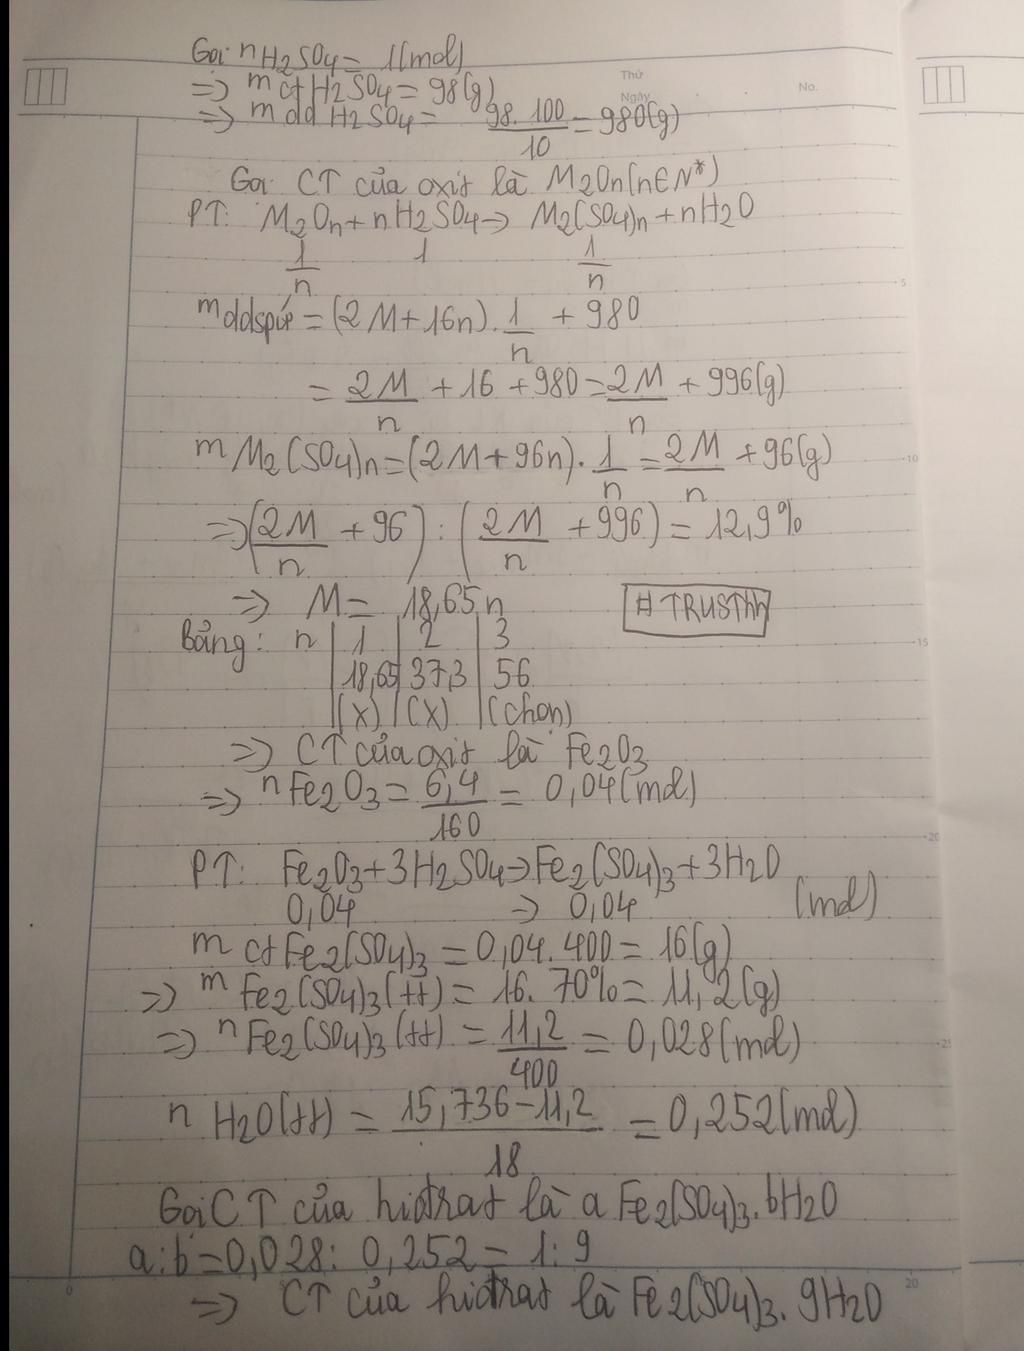 Gọi nH2SO4 = 1(mol)
=> m ct H2SO4 = 98(g)
=> m dd H2SO4 = 98.100/10 = 980(g)
Thứ
Ngày
No.
Gọi CT của oxit là M2On(n∈N*)
PT: M2On + nH2SO4 -> M2(SO4)n + nH2O
1/n 1 1/n
mddspứ = (2M+16n).1/n + 980
= 2M/n + 16 + 980 = 2M/n + 996(g)
m M2(SO4)n = (2M+96n).1/n = 2M/n + 96(g)
=> (2M/n + 96) : (2M/n + 996) = 12,9%
=> M = 18,65n
#TRUSThh
Bảng: n | 1 | 2 | 3
| 18,65 | 37,3 | 56
| (X) | (X) | (chọn)
=> CT của oxit là Fe2O3
=> nFe2O3 = 6,4/160 = 0,04(mol)
PT: Fe2O3 + 3H2SO4 -> Fe2(SO4)3 + 3H2O
0,04 -> 0,04 (mol)
m ctFe2(SO4)3 = 0,04.400 = 16(g)
=> m Fe2(SO4)3(tt) = 16.70% = 11,2(g)
=> n Fe2(SO4)3(tt) = 11,2/400 = 0,028(mol)
n H2O(tt) = 15,736-11,2/18 = 0,252(mol)
Gọi CT của hiđrat là aFe2(SO4)3.bH2O
a:b = 0,028 : 0,252 = 1:9
=> CT của hiđrat là Fe2(SO4)3.9H2O
5
10
15
20
25
20